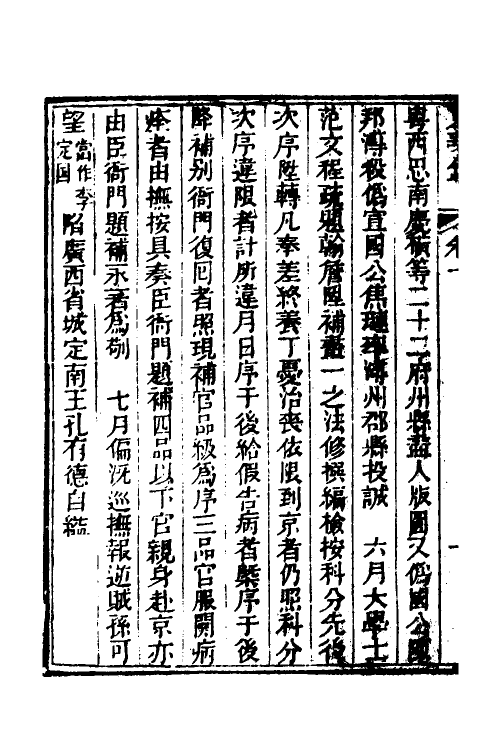 粵西思南慶等二十二府州縣盡入版圖又僞國公
邦傅殺僞宣國公焦璉率潯州郡縣投誠　六月大學士
范文程疏題翰詹陞補畫一之法修撰編檢按科分先後
次序陞轉凡奉差終養丁憂治喪依限到京者仍照科分
次序違限者計所違月日序于後給假告病者槩序于後
降補别衙門復囘者照現補官品級爲序三品官服闋病
痊者由撫按具奏臣衙門題補四品以下官親身赴京亦
由臣衙門題補永著爲例　七月偏沅巡撫報逆賊孫可
望當作李定国陷廣西省城定南王孔有德自縊
卷一
一